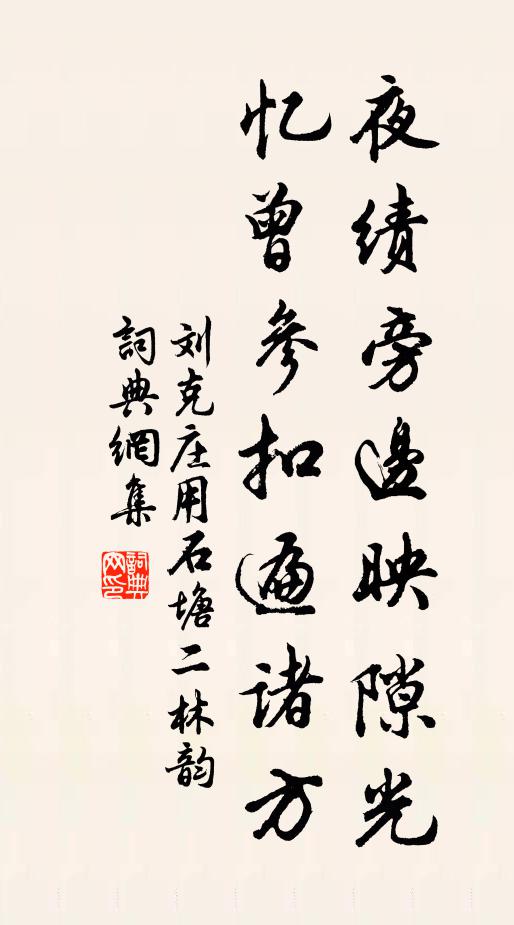 夜績旁邊映隙光
忆曾參扣遍诸方
刘克庄用石塘二林韵
詞典網集
詞典網印